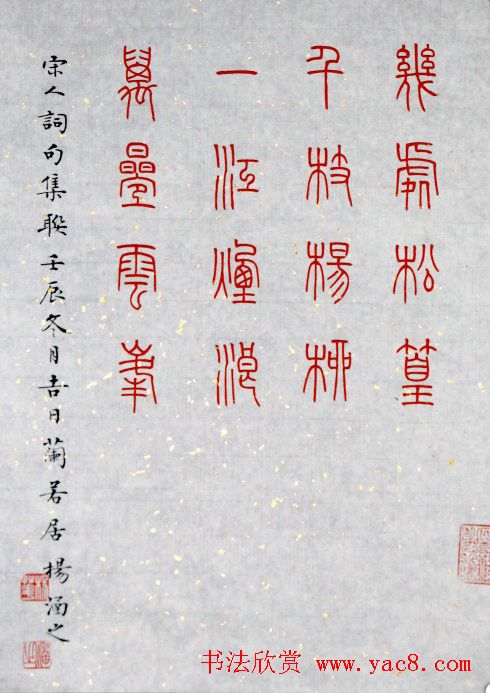 幾處松篁
千枝楊柳
一江煙浪
萬疊雲峯
宋人詞句集聯壬辰冬月吉日蘭若居楊涵之
书法欣赏 www.yac8.com